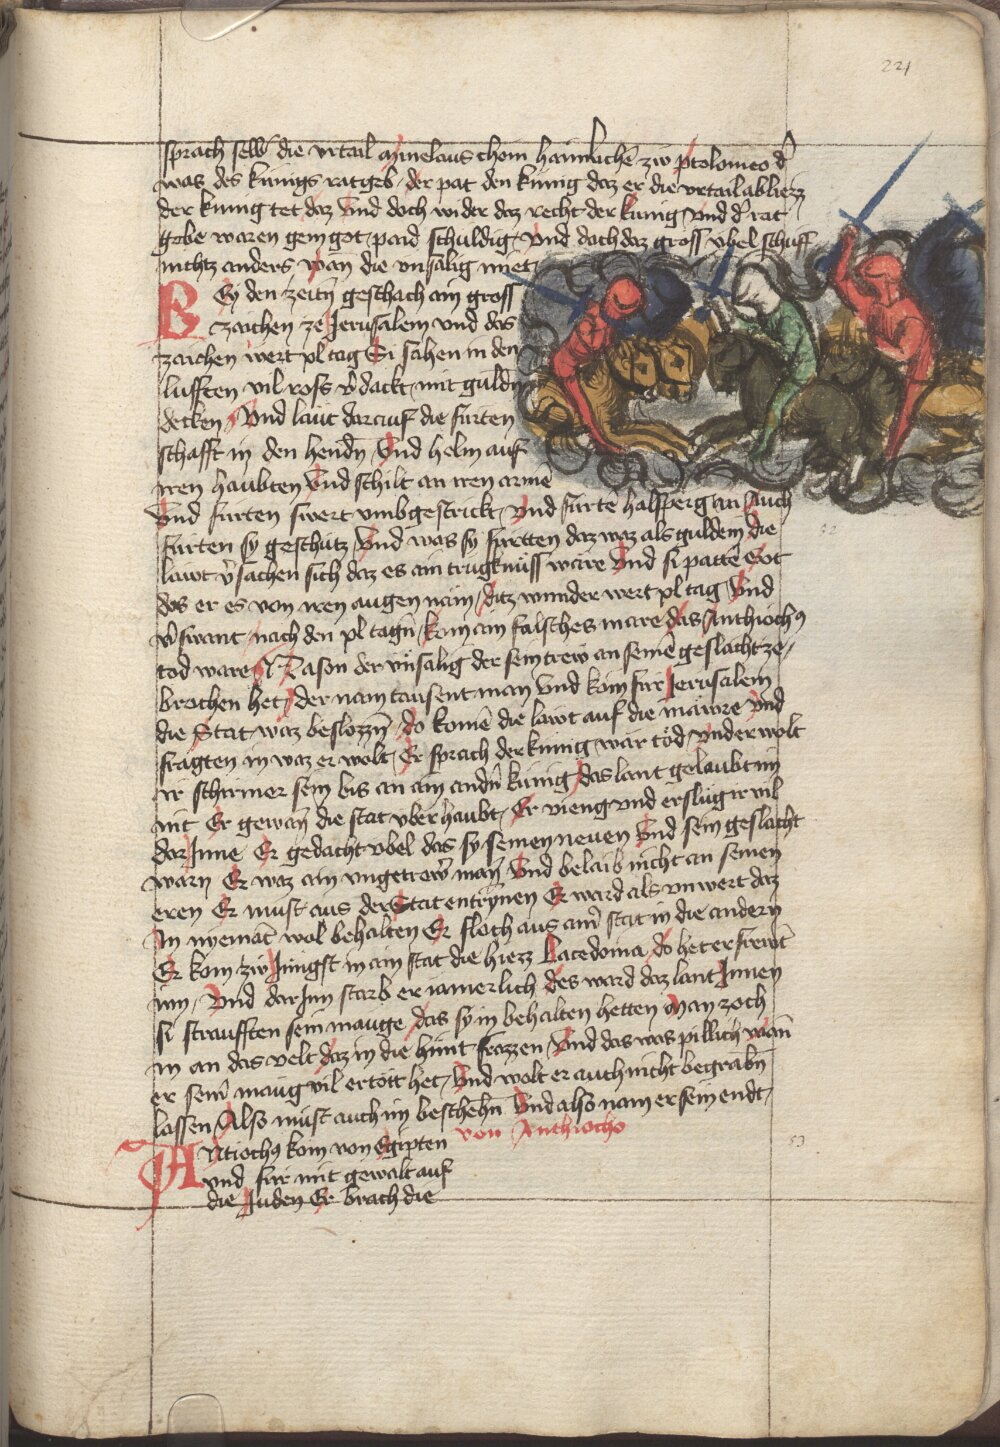 221
sprach selb̄ die vrtail Menelaus chom haimlichē zw ptolomeo d̄
was des künigs ratgeb · der pat den künig daz er die vrtail abliezz
der künig tet daz Vnd doch wider daz recht der künig Vnd d̄ rat
gebe waren gem got paid schuldig · Vnd doch daz gross vbel schuff
nichtz anders wan die vnsälig miet ·
BEy den zeitñ geschach ain gross
zaichen ze Jerusalem vnd das
zaichen wert pl tag Si sahen in den
lufften vil ross v̄dackt mit guldn̄
decken Vnd läut darauf die fürten
schafft in den hendn̄ Vnd helm auf
iren haubten Vnd schilt an iren armē
Vnd fürten swert vmbgestrickt Vnd fürtē halsperg an Auch
fürten sy geschütz Vnd was sy fürtten daz waz als guldem die
läwt v̄sachen sich daz es ain trugknüss wäre Vnd si pattē Got
das er es von iren augen näm ditz wunder wert pl tag Vnd
v̄swant nach den pl tagn̄ kom ain falsches märe das Anthiochꝯ
tod ware Jason der vnsälig der sein trew an seinē geslächt ze
brochen het der nam tausent man Vnd kom für Jerusalem
die Stat waz beslozzn̄ do komē die läwt auf die mäwre Vnd
fragten in waz er wolt Er sprach der künig wär töd Vnd er wolt
ir schirmer sein bis an ain andn̄ künig das lant gelaubt im
nit Er gewan die stat vber haubt Er vieng vnd erslüg ir vil
dar Inne Er gedacht vbel das sy seinen neuen Vnd sein geslächt
warn Er waz ain vngetrew̄ man Vnd belaib nicht an seinen
eren Er must aus der Stat entrynen Er ward als vnwert daz
In nyemāt wol behalten Er floch aus ain̄ stat in die andern
Er kom zw Jungst in ain stat die hiezz Lacedonia do het er frewt
inn Vnd dar Inn starb er iamerlich des ward daz lant Innen
si straufften sein mauge das sy in behalten hetten Man zoch
in an das velt daz in die hünt frazzen Vnd das was pillich wann̄
er sein̄ maug vil ertött het Vnd wolt er auch nicht begrabn̄
lassen Also must auch im beschehn̄ Vnd also nam er sein endt
von Anthiocho
ANtiochꝯ kom von Egipten
vnd für mit gewalt auf
die Juden Er brach die
52
53